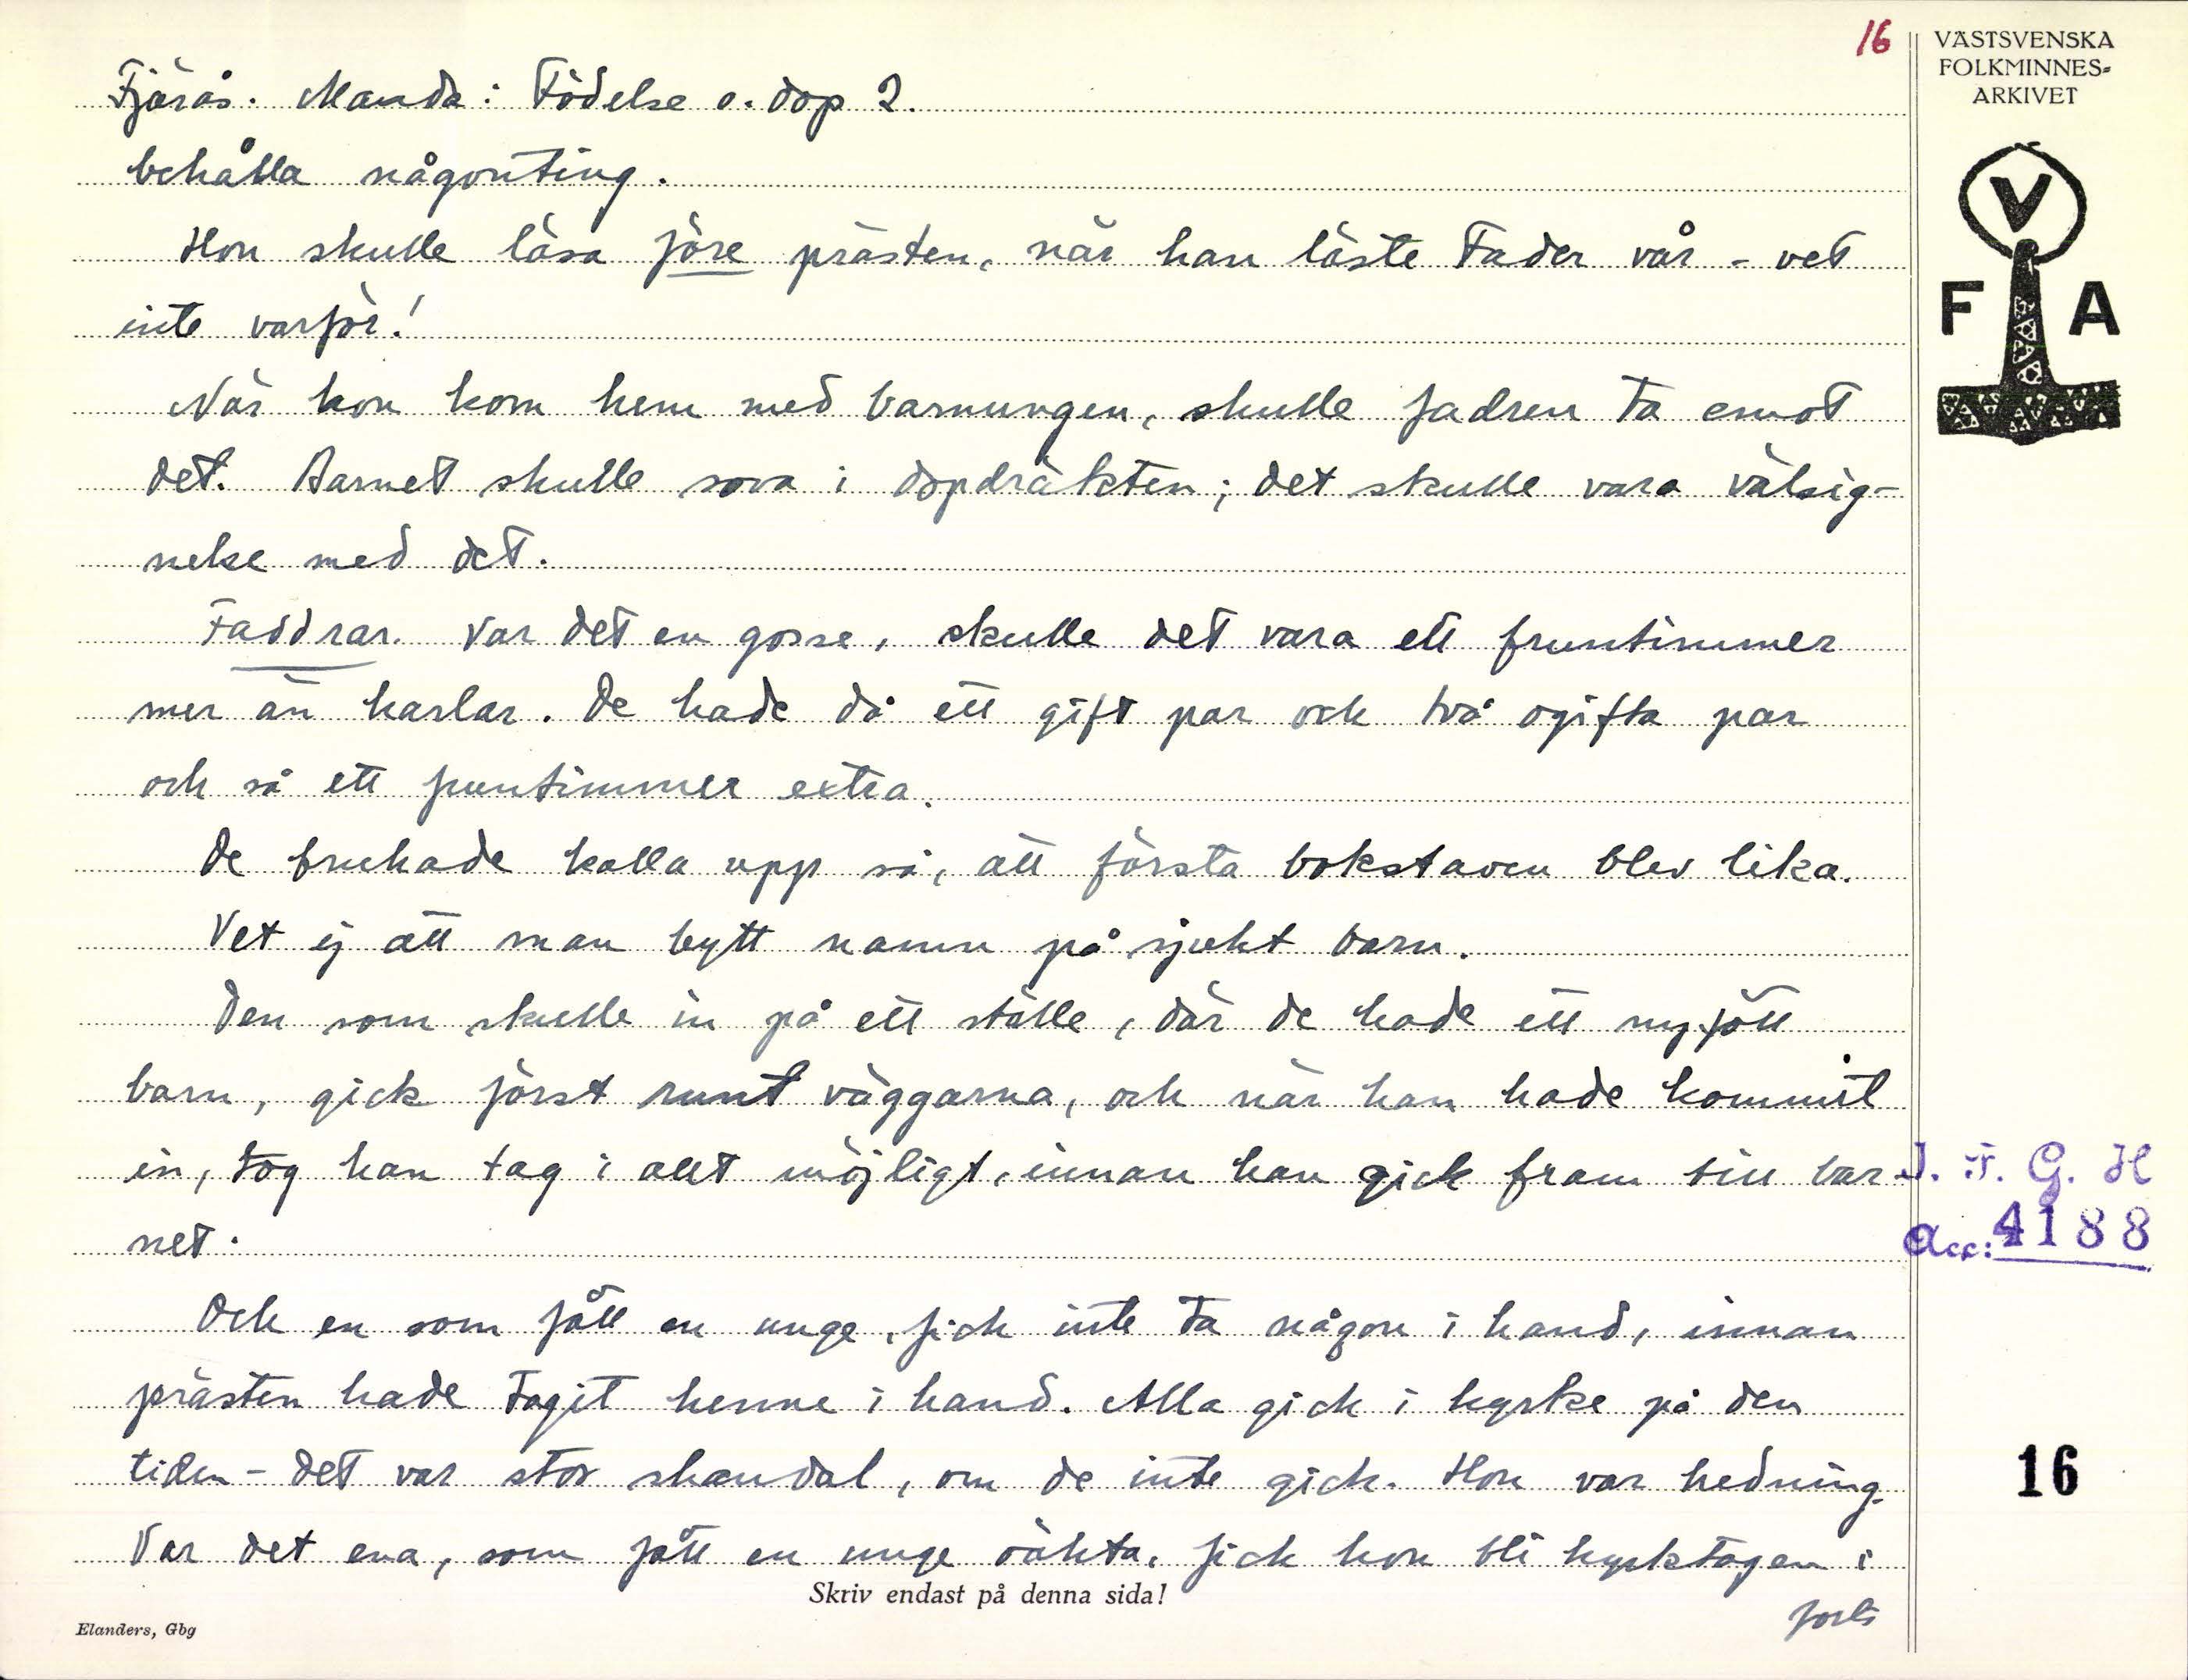 16
VÄSTSVENSKA
FOLKMINNES-
ARKIVET
V
F A
Fjärås. Manda: Födelse o. dop 2.
behålla någonting.
Hon skulle läsa före prästen, när han läste Fader vår - vet
inte varför!
När hon kom hem med barnungen, skulle fadren ta emot
det. Barnet skulle sova i dopdräkten; det skulle vara välsig-
nelse med det.
Faddrar. Var det en gosse, skulle det vara ett fruntimmer
mer än karlar. De hade då ett gift par och två ogifta par
och så ett fruntimmer extra.
De brukade kalla upp så, att första bokstaven blev lika.
Vet ej att man bytt namn på sjukt barn.
Den som skulle in på ett ställe, där de hade ett nyfött
barn, gick först runt väggarna, och när han hade kommit
in, tog han tag i allt möjligt, innan han gick fram till bar
net.
Och en som fått en unge, fick inte ta någon i hand, innan
prästen hade tagit henne i hand. Alla gick i kyrke på den
tiden - det var stor skandal, om de inte gick. Hon var hedning.
Var det ena, som fått en unge oäkta, fick hon bli kyrktagen i
forts
I. F. G. H
Acc: 4188
16
Skriv endast på denna sida!
Elanders, Gbg